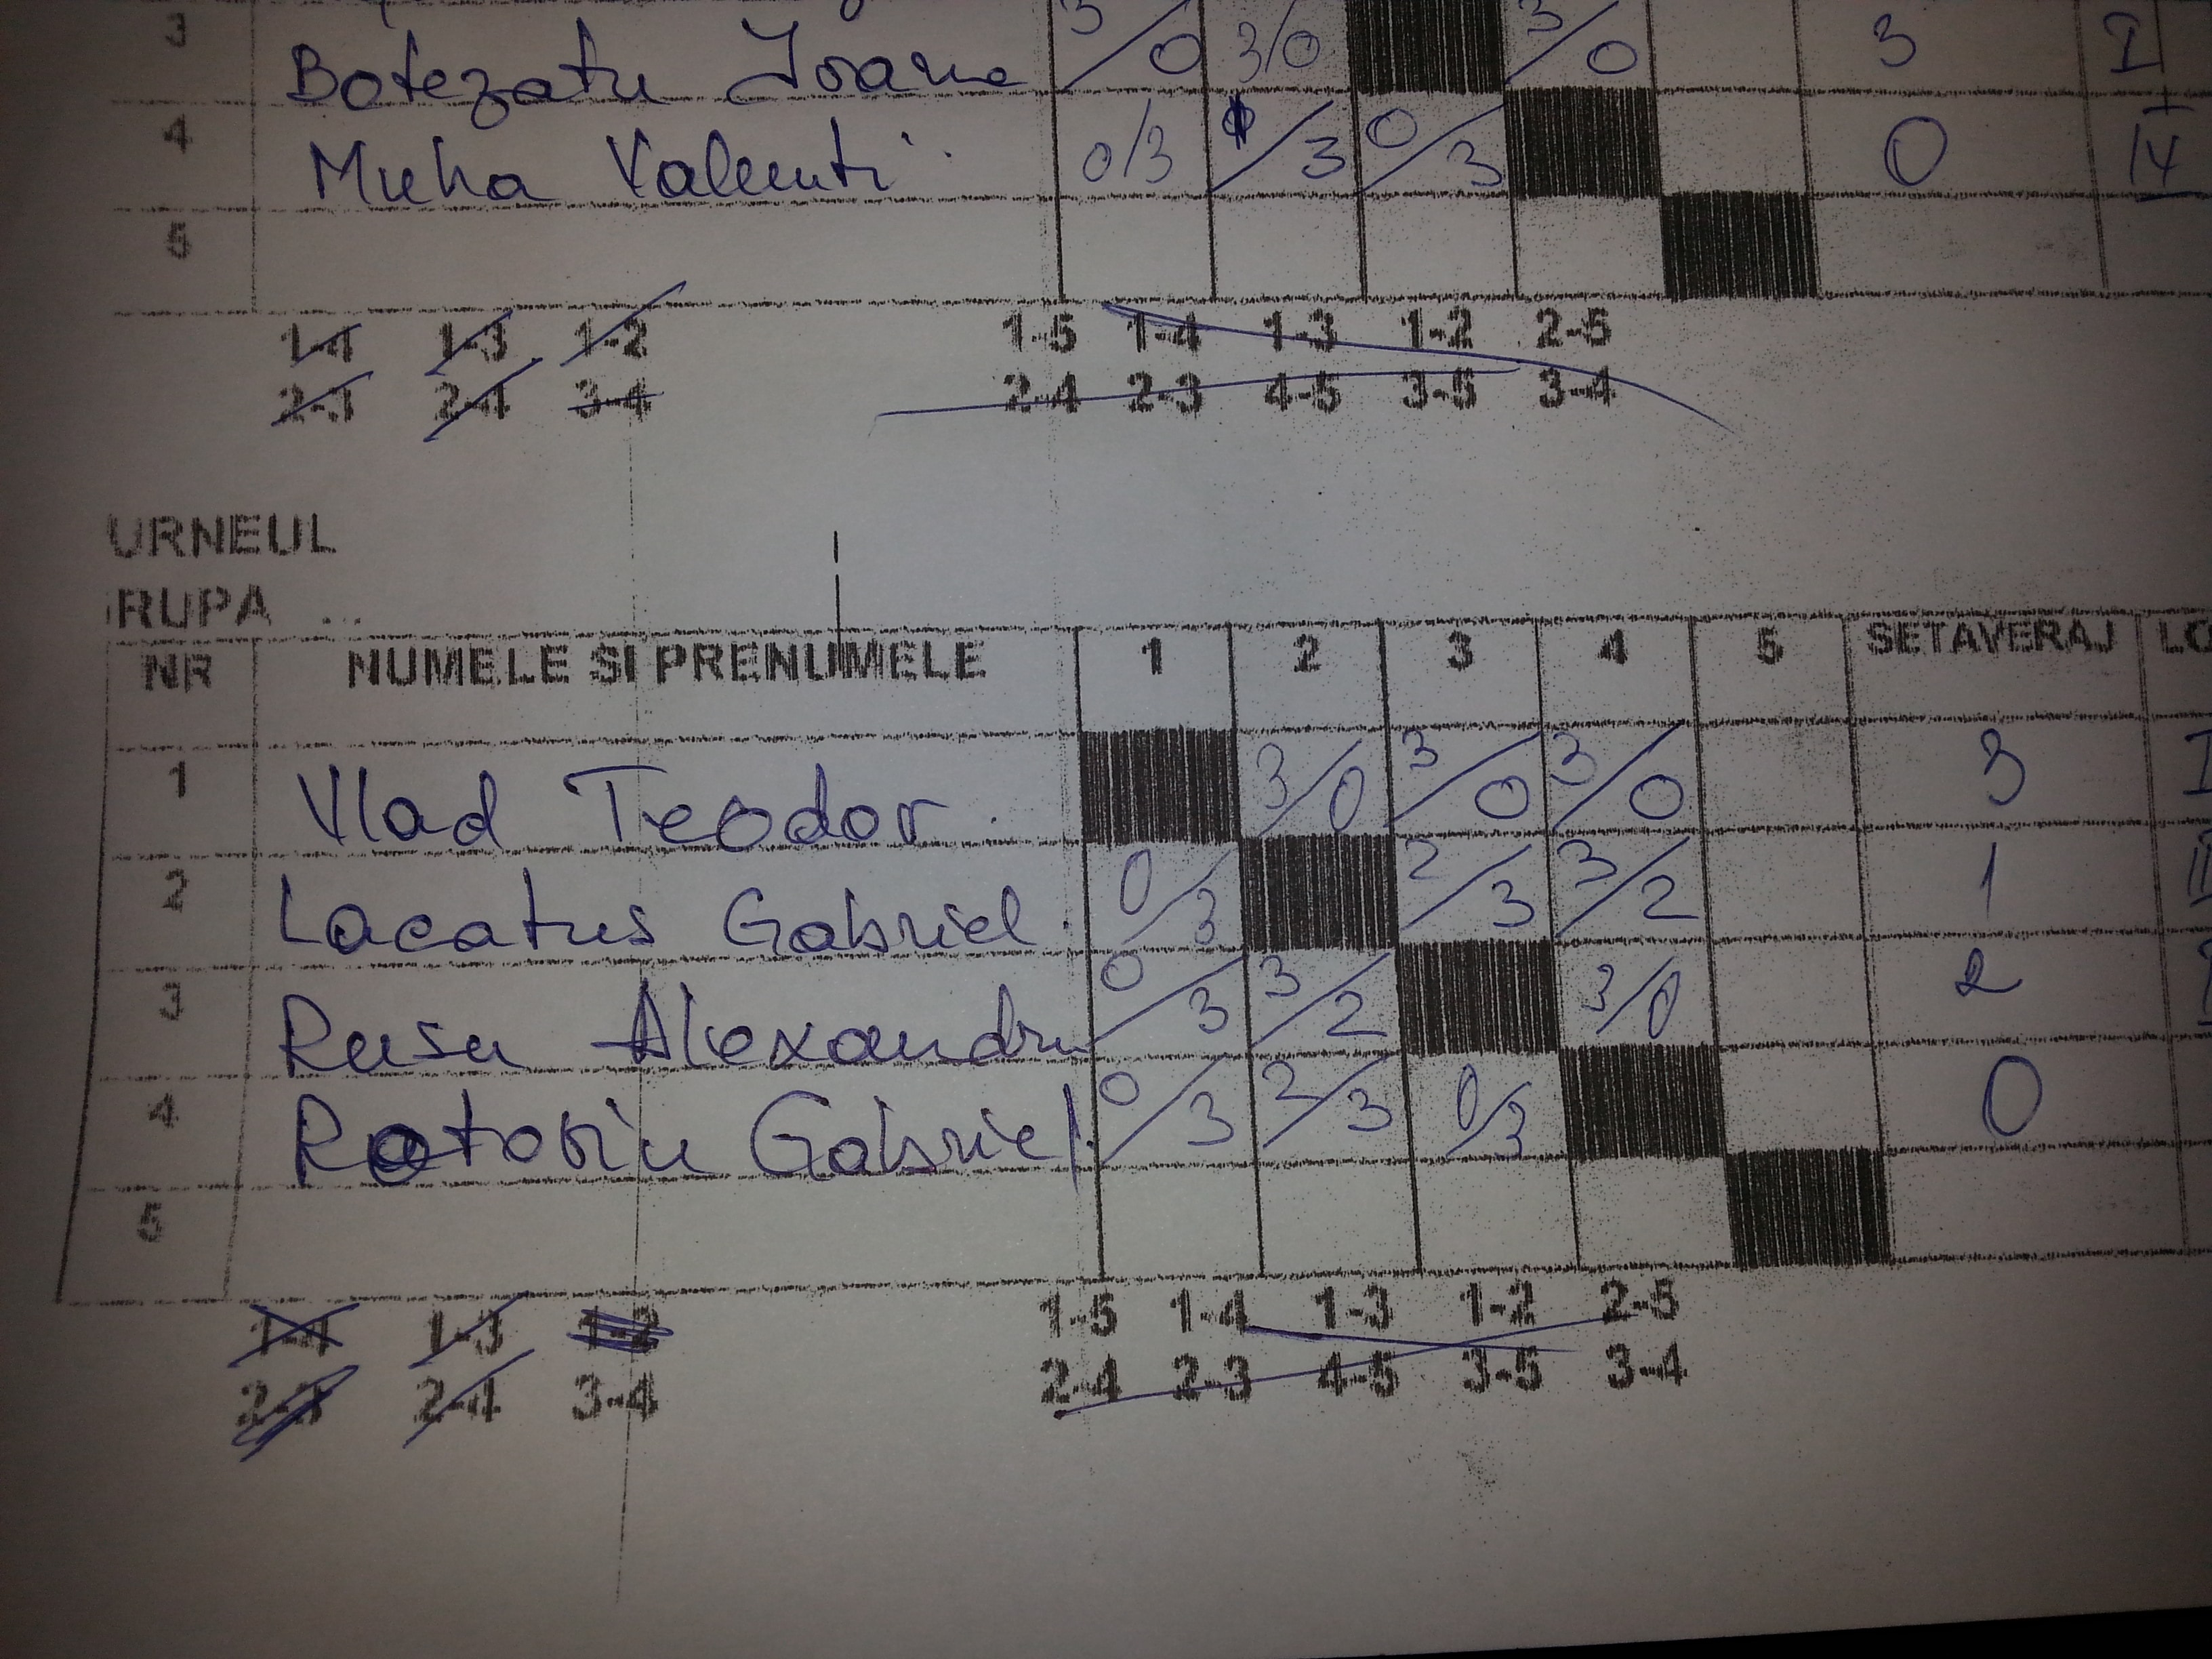 3 Botezatu Ioana 3/0 3/0 3/0 3 I
4 Muha Valenti 0/3 /3 0/3 0 IV
5
1-4 1-3 1-2 1-5 1-4 1-3 1-2 2-5
2-3 2-4 3-4 2-4 2-3 4-5 3-5 3-4
URNEUL
RUPA ...
NR NUMELE SI PRENUMELE 1 2 3 4 5 SETAVERAJ LO
1 Vlad Teodor 3/0 3/0 3/0 3 I
2 Lacatus Gabriel 0/3 2/3 3/2 1 II
3 Rusu Alexandru 0/3 3/2 3/0 2
4 Gabriel 0/3 2/3 0/3 0
5
1-4 1-3 1-2 1-5 1-4 1-3 1-2 2-5
2-3 2-4 3-4 2-4 2-3 4-5 3-5 3-4